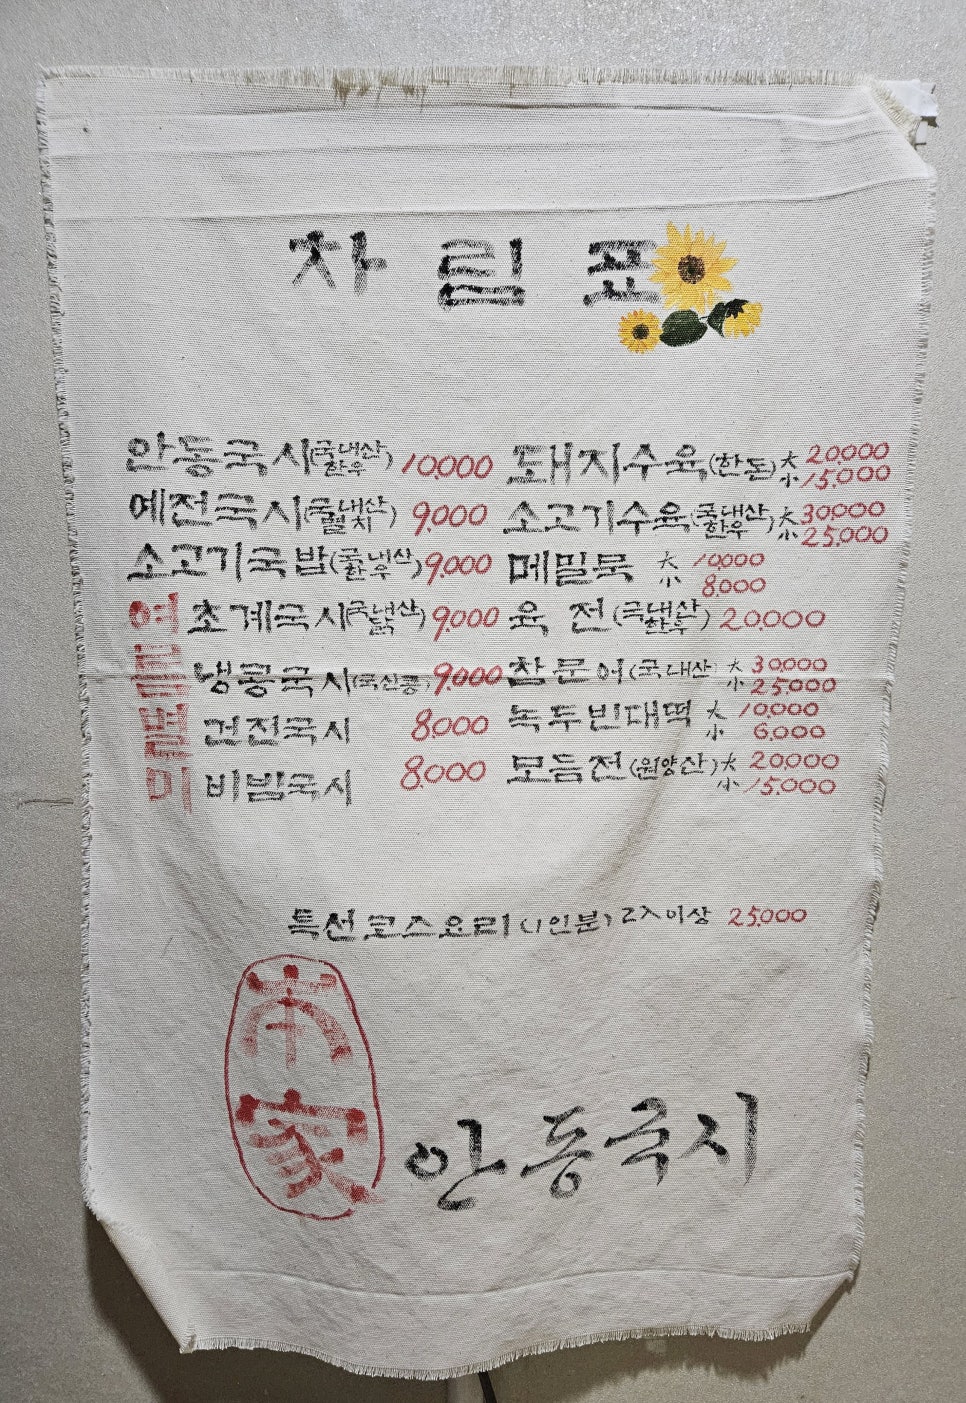 차림표
안동국시(국내산 한우) 10,000
예전국시(국내산 멸치) 9,000
소고기국밥(국내산 한우) 9,000
여름별미
초계국시(국내산 닭) 9,000
냉콩국시(국산콩) 9,000
건전국시 8,000
비빔국시 8,000
돼지수육(한돈) 大 20,000
小 15,000
소고기수육(국내산 한우) 大 30,000
小 25,000
메밀묵 大 10,000
小 8,000
육전(국내산 한우) 20,000
참문어(국내산) 大 30,000
小 25,000
녹두빈대떡 大 10,000
小 6,000
모듬전(원양산) 大 20,000
小 15,000
특선코스요리(1인분) 2人이상 25,000
本家
안동국시